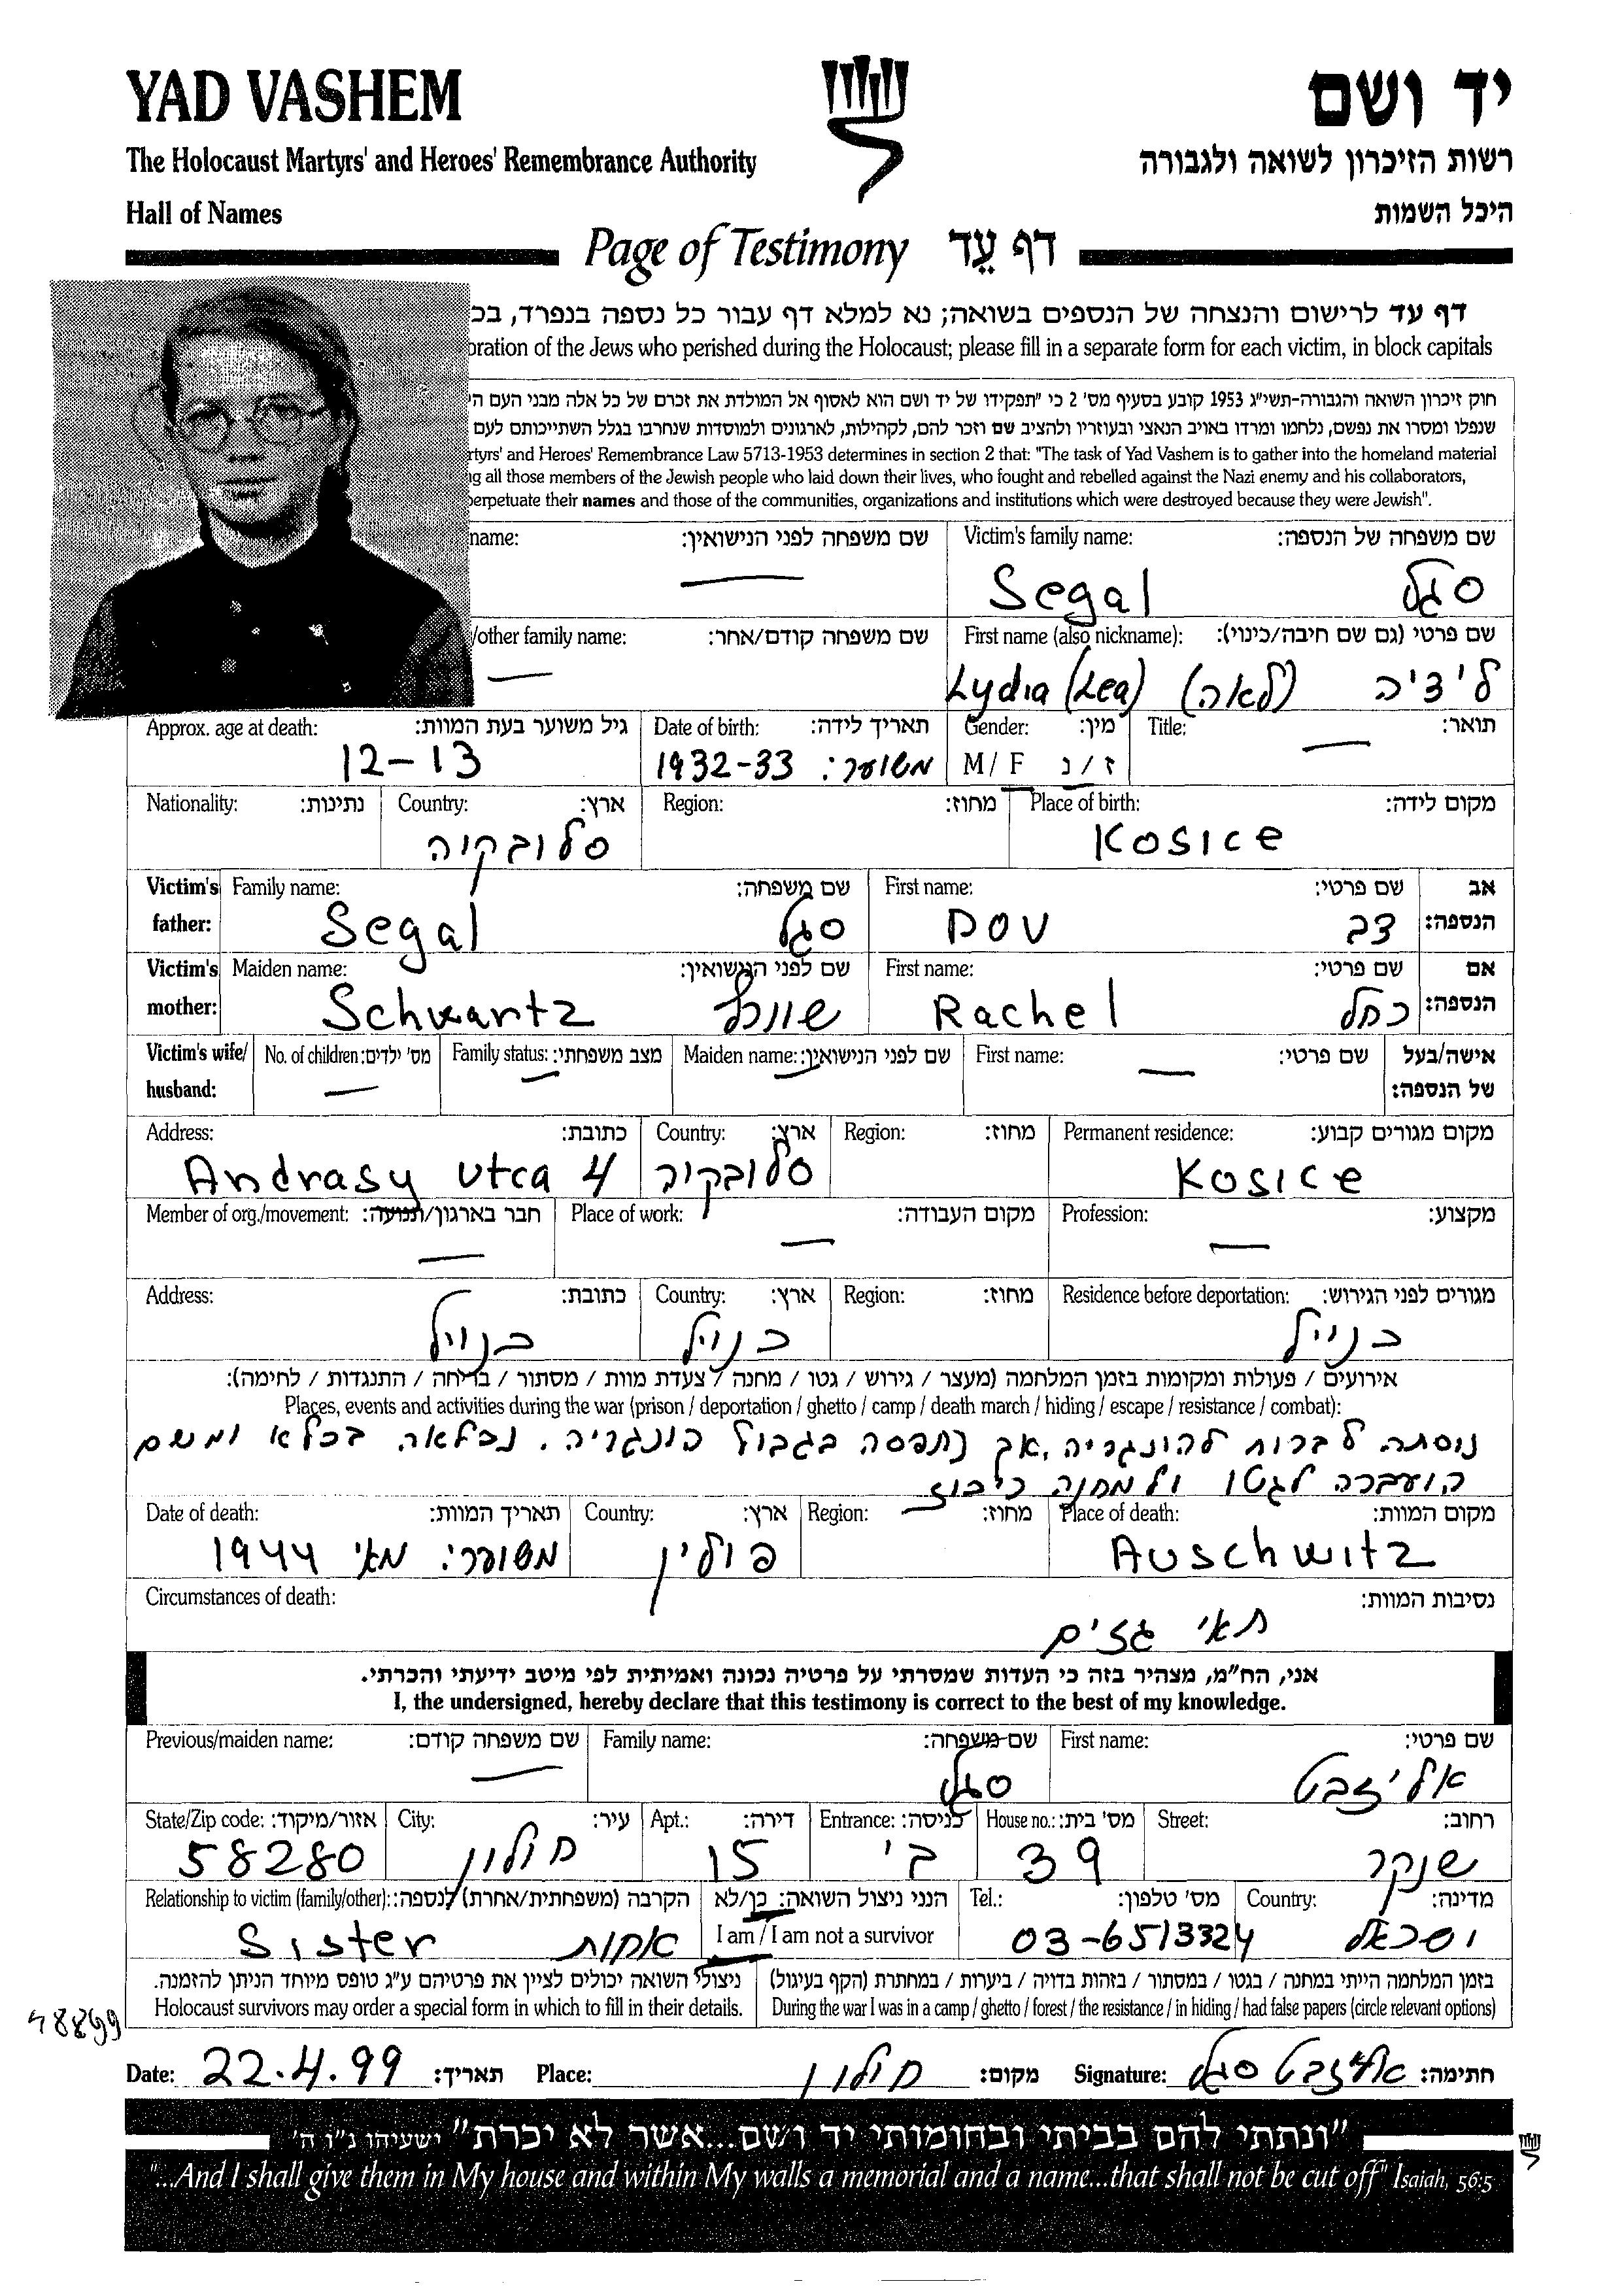 YAD VASHEM
יד ושם
The Holocaust Martyrs' and Heroes' Remembrance Authority
רשות הזיכרון לשואה ולגבורה
Hall of Names
היכל השמות
Page of Testimony דף עֵד
דף עד לרישום והנצחה של הנספים בשואה; נא למלא דף עבור כל נספה בנפרד,
of the Jews who perished during the Holocaust; please fill in a separate form for each victim, in block capitals
חוק זיכרון השואה והגבורה-תשי"ג 1953 קובע בסעיף מס' 2 כי "תפקידו של יד ושם הוא לאסוף אל המולדת את זכרם של כל אלה מבני העם
שנפלו ומסרו את נפשם, נלחמו ומרדו באויב הנאצי ובעוזריו ולהציב שם וזכר להם, לקהילות, לארגונים ולמוסדות שנחרבו בגלל השתייכותם לעם
and Heroes' Remembrance Law 5713-1953 determines in section 2 that: "The task of Yad Vashem is to gather into the homeland material
all those members of the Jewish people who laid down their lives, who fought and rebelled against the Nazi enemy and his collaborators,
perpetuate their names and those of the communities, organizations and institutions which were destroyed because they were Jewish".
name: שם משפחה לפני הנישואין: Victim's family name: שם משפחה של הנספה:
— Segal סגל
/other family name: שם משפחה קודם/אחר: First name (also nickname): שם פרטי (גם שם חיבה/כינוי):
— Lydia (Lea) לידיה (לאה)
Approx. age at death: גיל משוער בעת המוות: Date of birth: תאריך לידה: Gender: מין: Title: תואר:
12-13 משוער: 1932-33 M / F ז / נ —
Nationality: נתינות: Country: ארץ: Region: מחוז: Place of birth: מקום לידה:
סלובקיה Kosice
Victim's father: Family name: שם משפחה: First name: שם פרטי: אב הנספה:
Segal סגל Dov דב
Victim's mother: Maiden name: שם לפני הנישואין: First name: שם פרטי: אם הנספה:
Schwartz שוורץ Rachel רחל
Victim's wife/ husband: No. of children: מס' ילדים: Family status: מצב משפחתי: Maiden name: שם לפני הנישואין: First name: שם פרטי: אישה/בעל של הנספה:
— — — —
Address: כתובת: Country: ארץ: Region: מחוז: Permanent residence: מקום מגורים קבוע:
Andrasy utca 4 סלובקיה Kosice
Member of org./movement: חבר בארגון/תנועה: Place of work: מקום העבודה: Profession: מקצוע:
— — —
Address: כתובת: Country: ארץ: Region: מחוז: Residence before deportation: מגורים לפני הגירוש:
כנ"ל כנ"ל כנ"ל
אירועים / פעולות ומקומות בזמן המלחמה (מעצר / גירוש / גטו / מחנה / צעדת מוות / מסתור / בריחה / התנגדות / לחימה):
Places, events and activities during the war (prison / deportation / ghetto / camp / death march / hiding / escape / resistance / combat):
ניסתה לברוח להונגריה, אך נתפסה בגבול הונגריה. נכלאה בכלא ומשם
הועברה לגטו ולמחנה ריכוז
Date of death: תאריך המוות: Country: ארץ: Region: מחוז: Place of death: מקום המוות:
משוער: מאי 1944 פולין — Auschwitz
Circumstances of death: נסיבות המוות:
תאי גזים
אני, הח"מ, מצהיר בזה כי העדות שמסרתי על פרטיה נכונה ואמיתית לפי מיטב ידיעתי והכרתי.
I, the undersigned, hereby declare that this testimony is correct to the best of my knowledge.
Previous/maiden name: שם משפחה קודם: Family name: שם משפחה: First name: שם פרטי:
— סגל אליזבט
State/Zip code: אזור/מיקוד: City: עיר: Apt.: דירה: Entrance: כניסה: House no.: מס' בית: Street: רחוב:
58280 חולון 15 ב' 39 שנקר
Relationship to victim (family/other): הקרבה (משפחתית/אחרת) לנספה: הנני ניצול השואה: כן/לא Tel.: מס' טלפון: Country: מדינה:
Sister אחות I am / I am not a survivor 03-6513324 ישראל
ניצולי השואה יכולים לציין את פרטיהם ע"ג טופס מיוחד הניתן להזמנה. בזמן המלחמה הייתי במחנה / בגטו / במסתור / בזהות בדויה / ביערות / במחתרת (הקף בעיגול)
Holocaust survivors may order a special form in which to fill in their details. During the war I was in a camp / ghetto / forest / the resistance / in hiding / had false papers (circle relevant options)
Date: 22.4.99 תאריך: Place: חולון מקום: Signature: אליזבט סגל חתימה:
"ונתתי להם בביתי ובחומותי יד ושם...אשר לא יכרת" ישעיהו נ"ו ה'
"...And I shall give them in My house and within My walls a memorial and a name...that shall not be cut off" Isaiah, 56:5